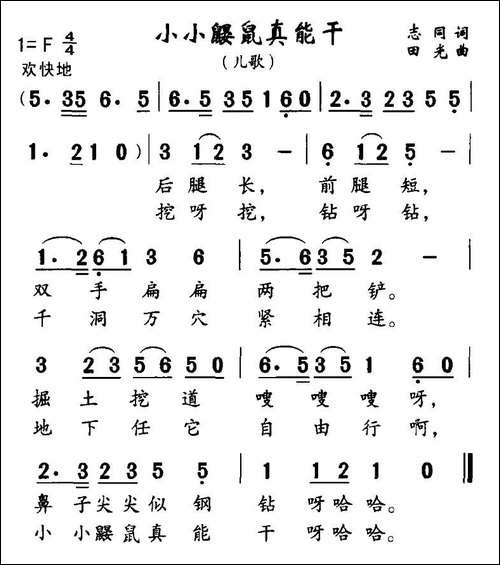 小小鼹鼠真能干
（儿歌）
志同词
田光曲
1=F 4/4
欢快地
（5· 35 6· 5 | 6·5 35 160 | 2·3 235 5
1· 210）| 3 12 3 － | 6 12 5 －
后腿长， 前腿短，
挖呀挖， 钻呀钻，
1·261 3 6 | 5·635 2 －
双手扁扁 两把铲。
千洞万穴 紧相连。
3 23 56 50 | 6·535 1 60
掘土挖道 嗖嗖嗖呀，
地下任它 自由行啊，
2·3 235 5 | 1 12 1 0 ‖
鼻子尖尖似钢 钻呀哈哈。
小小鼹鼠真能 干呀哈哈。